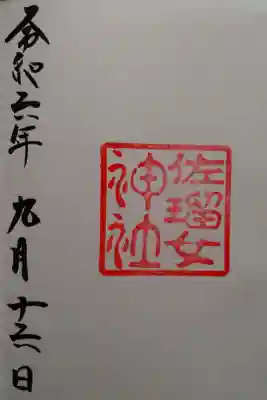 令和六年 九月十六日
佐瑠女
神社